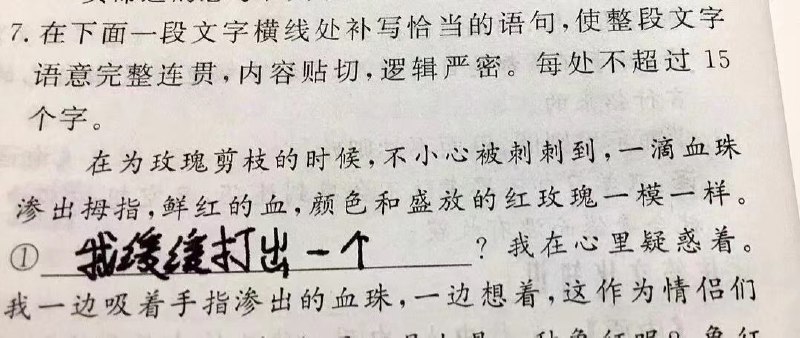 7. 在下面一段文字横线处补写恰当的语句,使整段文字
语意完整连贯,内容贴切,逻辑严密。每处不超过 15
个字。
在为玫瑰剪枝的时候,不小心被刺刺到,一滴血珠
渗出拇指,鲜红的血,颜色和盛放的红玫瑰一模一样。
① 我缓缓打出一个?我在心里疑惑着。
我一边吸着手指渗出的血珠,一边想着,这作为情侣们